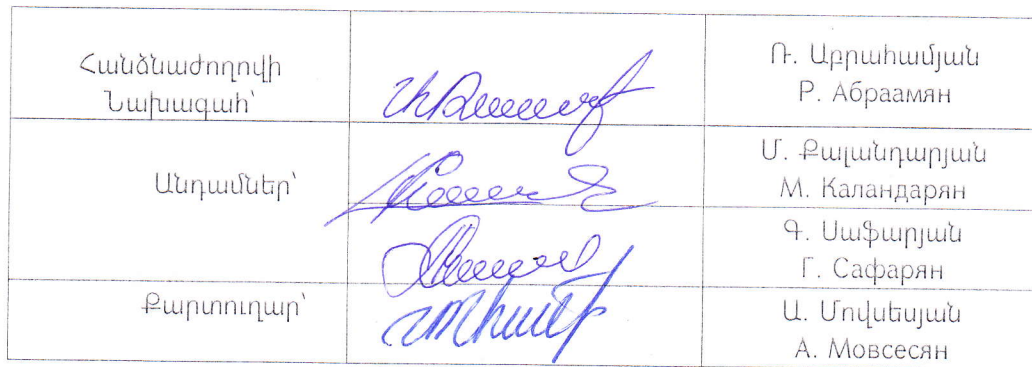 Հանձնաժողովի
Նախագահ՝
Ռ. Աբրահամյան
Р. Абраамян
Անդամներ՝
Մ. Քալանդարյան
М. Каландарян
Գ. Սաֆարյան
Г. Сафарян
Քարտուղար՝
Ա. Մովսեսյան
А. Мовсесян